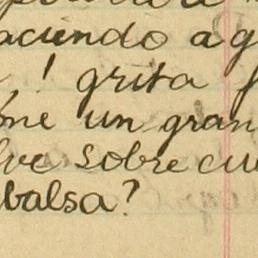 aciendo ag
! grita
one un gran
lve sobre cu
balsa?